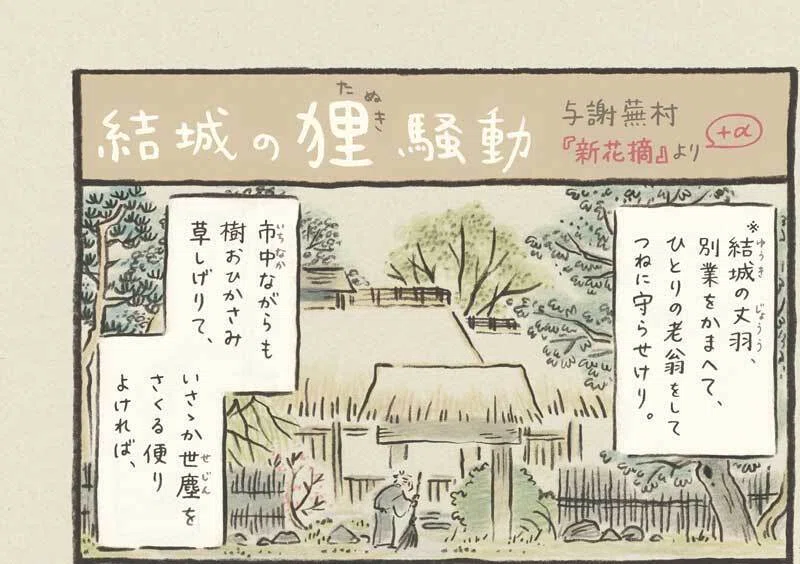 結城の狸騒動
たぬき
与謝蕪村
『新花摘』より
+α
※結城の丈羽、
ゆうき
じょうう
別業をかまへて、
ひとりの老翁をして
つねに守らせけり。
市中ながらも
いちなか
樹おひかさみ
草しげりて、
いさゝか世塵を
せじん
さくる便り
よければ、